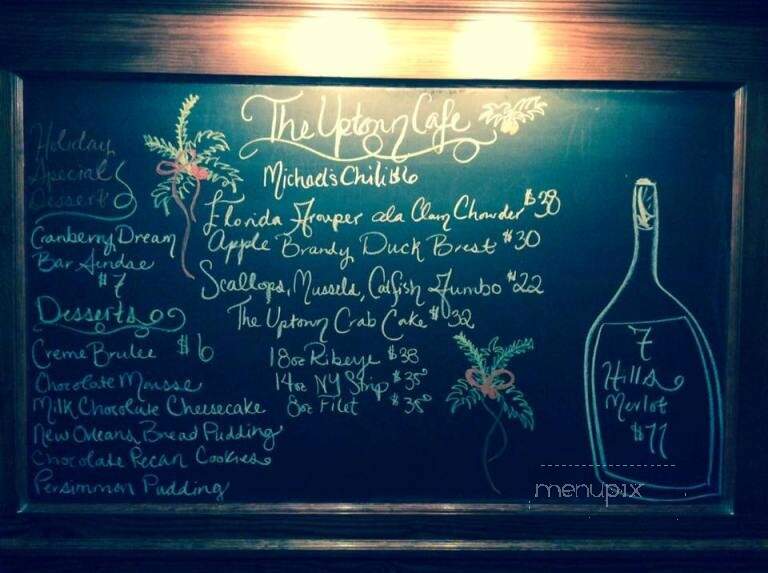 The Uptown Cafe
Michael's Chili $6
Florida Grouper ala Clam Chowder $38
Apple Brandy Duck Brest $30
Scallops, Mussels, Catfish Jumbo $22
The Uptown Crab Cake $32
18oz Ribeye $38
14oz NY Strip $35
8oz Filet $35
Holiday
Special
Dessert
Cranberry Dream
Bar Sundae
$7
Desserts
Creme Brulee $6
Chocolate Mousse
Milk Chocolate Cheesecake
New Orleans Bread Pudding
Chocolate Pecan Cookies
Persimmon Pudding
7
Hills
Merlot
$11
menupix